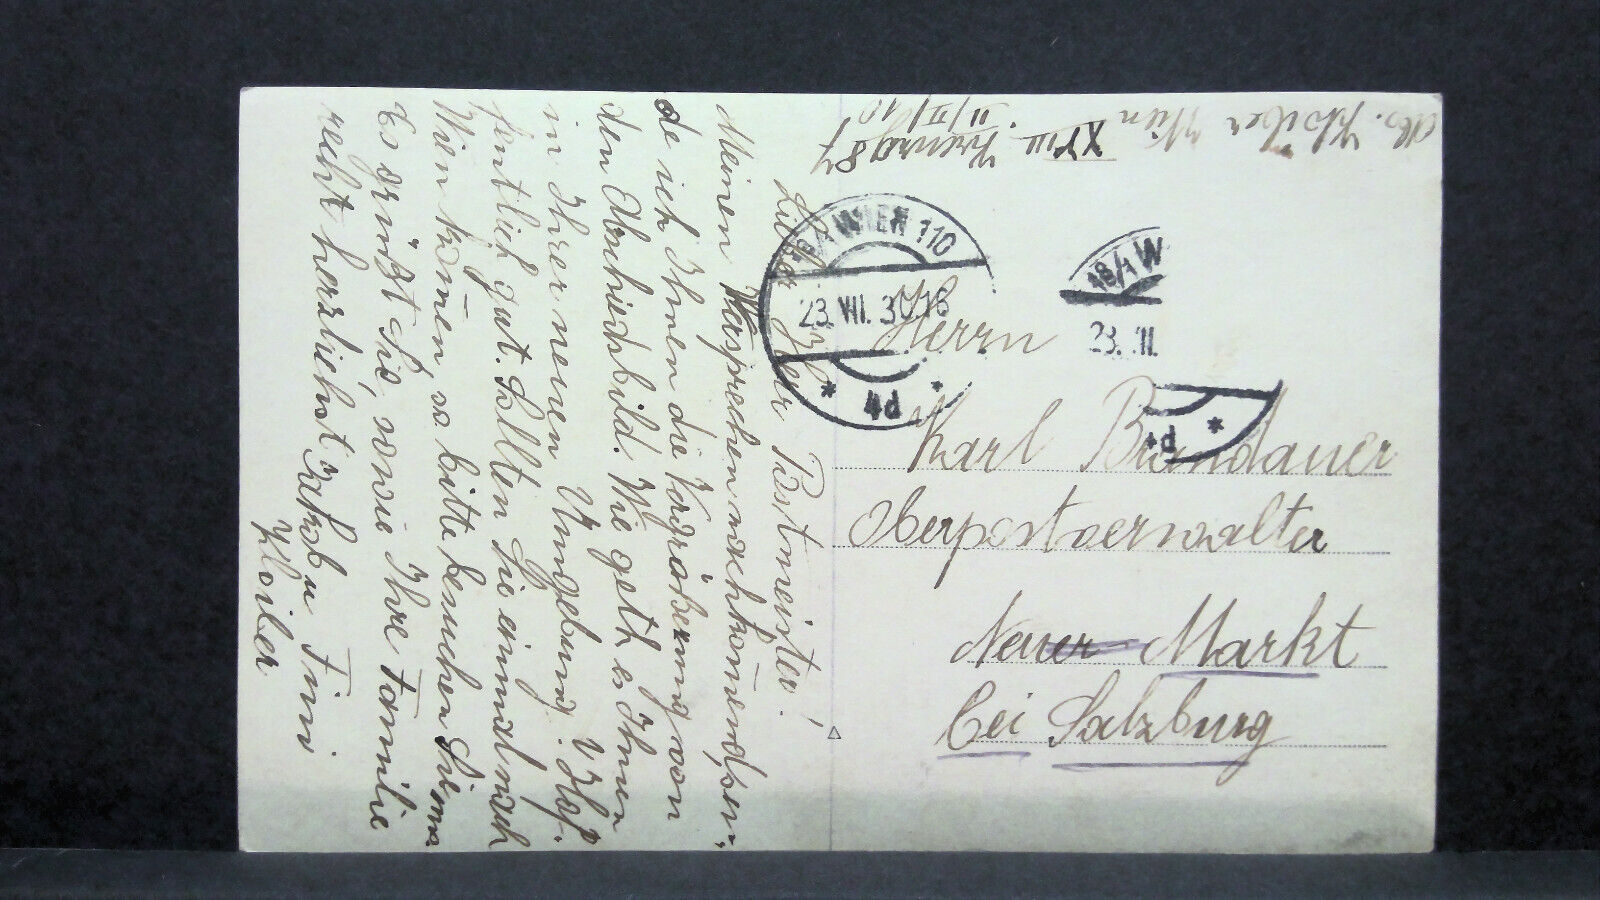 Lieber Herr Postmeister!
Meinen Versprechen nachkom̄end, sen-
de ich Ihnen die Vergrößerung von
den Abschiedsbild. Wie geth es Ihnen
in Ihrer neuen Umgebung? Hof-
fentlich gut. Sollten Sie einmal nach
Wien kom̄en, so bitte besuchen Sie mx
Es grüßt Sie, sowie Ihre Familie
recht herzlichst Jakob u Fini
Kloiber
Abs. Kloiber Wien
XVIII 87
II/II/10
18/1 WIEN 110
23. VII. 30 16
* 4d *
18/1 W
23. VII.
4d *
Herrn
Karl Brandauer
Oberpostverwalter
Neuer Markt
bei Salzburg